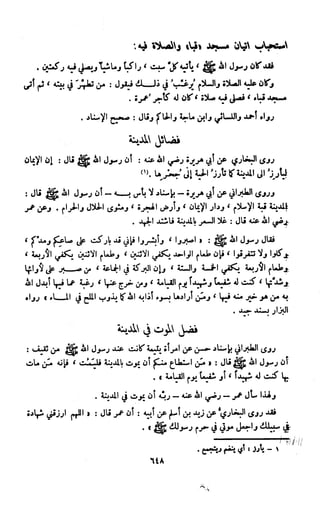 استحباب اتيان مسجد «قباء» والصلاة فيه:
فقد كان رسول الله ﷺ، يأتيه كلّ سبت، راكباً وماشياً ويصلي فيه ركعتين.
وكان عليه الصلاة والسلام يُرغّب في ذلك فيقول: من تطهّر في بيته، ثم أتى
مسجد قباء، فصلى فيه صلاة، كان له كأجر عمرة.
رواه أحمد والنسائي وابن ماجة والحاكم وقال: صحيح الإسناد.
فضائل المدينة
روى البخاري عن أبي هريرة رضي الله عنه: أن رسول الله ﷺ قال: إن الإيمان
ليأرز إلى المدينة كما تأرز الحية إلى جحرها. (١)
وروى الطبراني عن أبي هريرة - بإسناد لا بأس به - أن رسول الله ﷺ قال:
المدينة قبة الإسلام، ودار الإيمان، وأرض الهجرة، ومثوى الحلال والحرام. وعن عمر
رضي الله عنه قال: غلا السعر بالمدينة فاشتد الجهد.
فقال رسول الله ﷺ: «اصبروا، وأبشروا فإني قد باركت على صاعكم ومدكم،
وكلوا ولا تتفرقوا، فإن طعام الواحد يكفي الاثنين، وطعام الاثنين يكفي الأربعة،
وطعام الأربعة يكفي الخمسة والستة، وإن البركة في الجماعة، من صبر على لأوائها
وشدتها، كنت له شفيعاً وشهيداً يوم القيامة، ومن خرج عنها، رغبة عما فيها أبدل الله
به من هو خير منه فيها، ومن أرادها بسوء أذابه الله كما يذوب الملح في الماء»، رواه
البزار بسند جيد.
فضل الموت في المدينة
روى الطبراني بإسناد حسن عن امرأة يتيمة كانت عند رسول الله ﷺ من ثقيف:
أن رسول الله ﷺ قال: «من استطاع منكم أن يموت بالمدينة فليمت، فإنه من مات
بها كنت له شهيداً، أو شفيعاً يوم القيامة».
ولهذا سأل عمر - رضي الله عنه - ربه أن يموت في المدينة.
فقد روى البخاري عن زيد بن أسلم عن أبيه: أن عمر قال: «اللهم ارزقني شهادة
في سبيلك واجعل موتي في حرم رسولك ﷺ».
١ - يأرز: أي ينضم ويتجمع.
٦٤٨